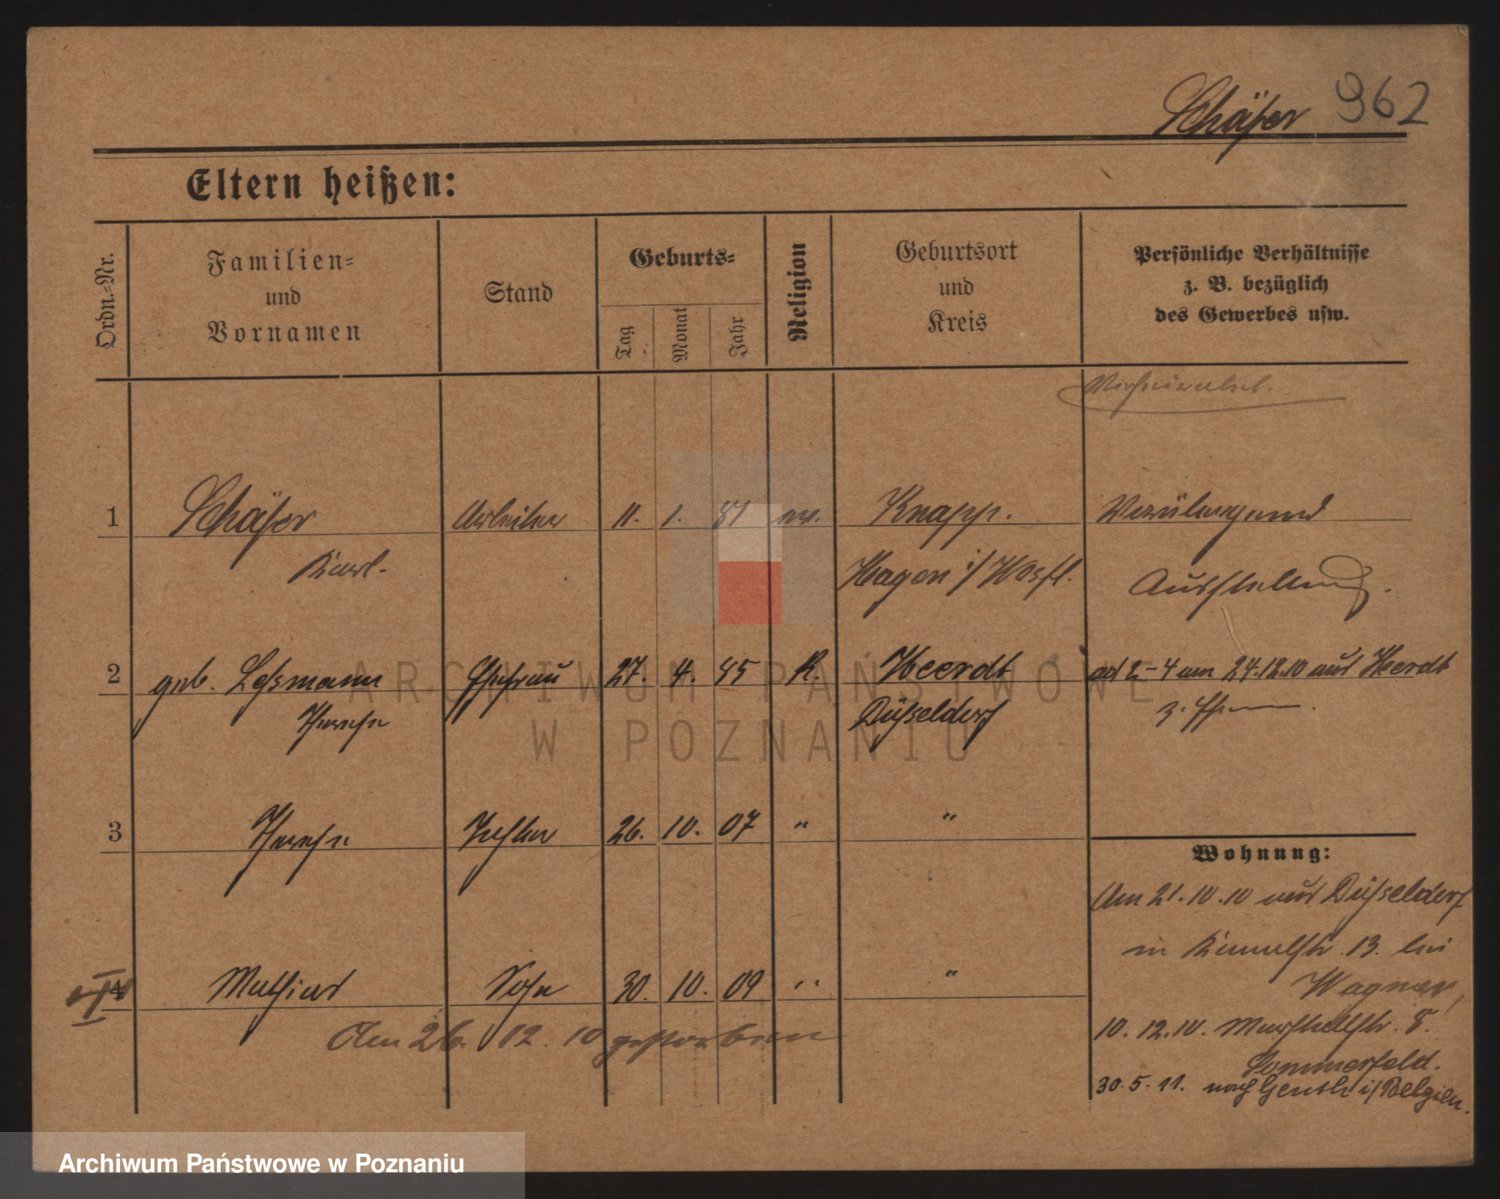 Schäfer 962
Eltern heißen:
Ordn.=Nr.
Familien=
und
Vornamen
Stand
Geburts=
Tag
Monat
Jahr
Religion
Geburtsort
und
Kreis
Persönliche Verhältnisse
z. B. bezüglich
des Gewerbes usw.
Verheiratet.
1 Schäfer Arbeiter 11. 1. 81 ev. Knapp.
Karl. Hagen i/ Westf. Ausstellung.
2 geb. Lehsmann Ehefrau 27. 4. 85 K. Heerdt ad 2-4 am 24.12.10 aus Heerdt
Therese Düsseldorf z. Ehem.
3 Therese Tochter 26. 10. 07 " "
4 Mathias Sohn 30. 10. 09 " "
Am 26. 12. 10 gestorben
Wohnung:
Am 21. 10. 10 aus Düsseldorf
in 13. bei
Wagner,
10. 12. 10. 8.
Sommerfeld.
30. 5. 11. nach Genth i/ Belgien.
ARCHIWUM PAŃSTWOWE
W POZNANIU
Archiwum Państwowe w Poznaniu